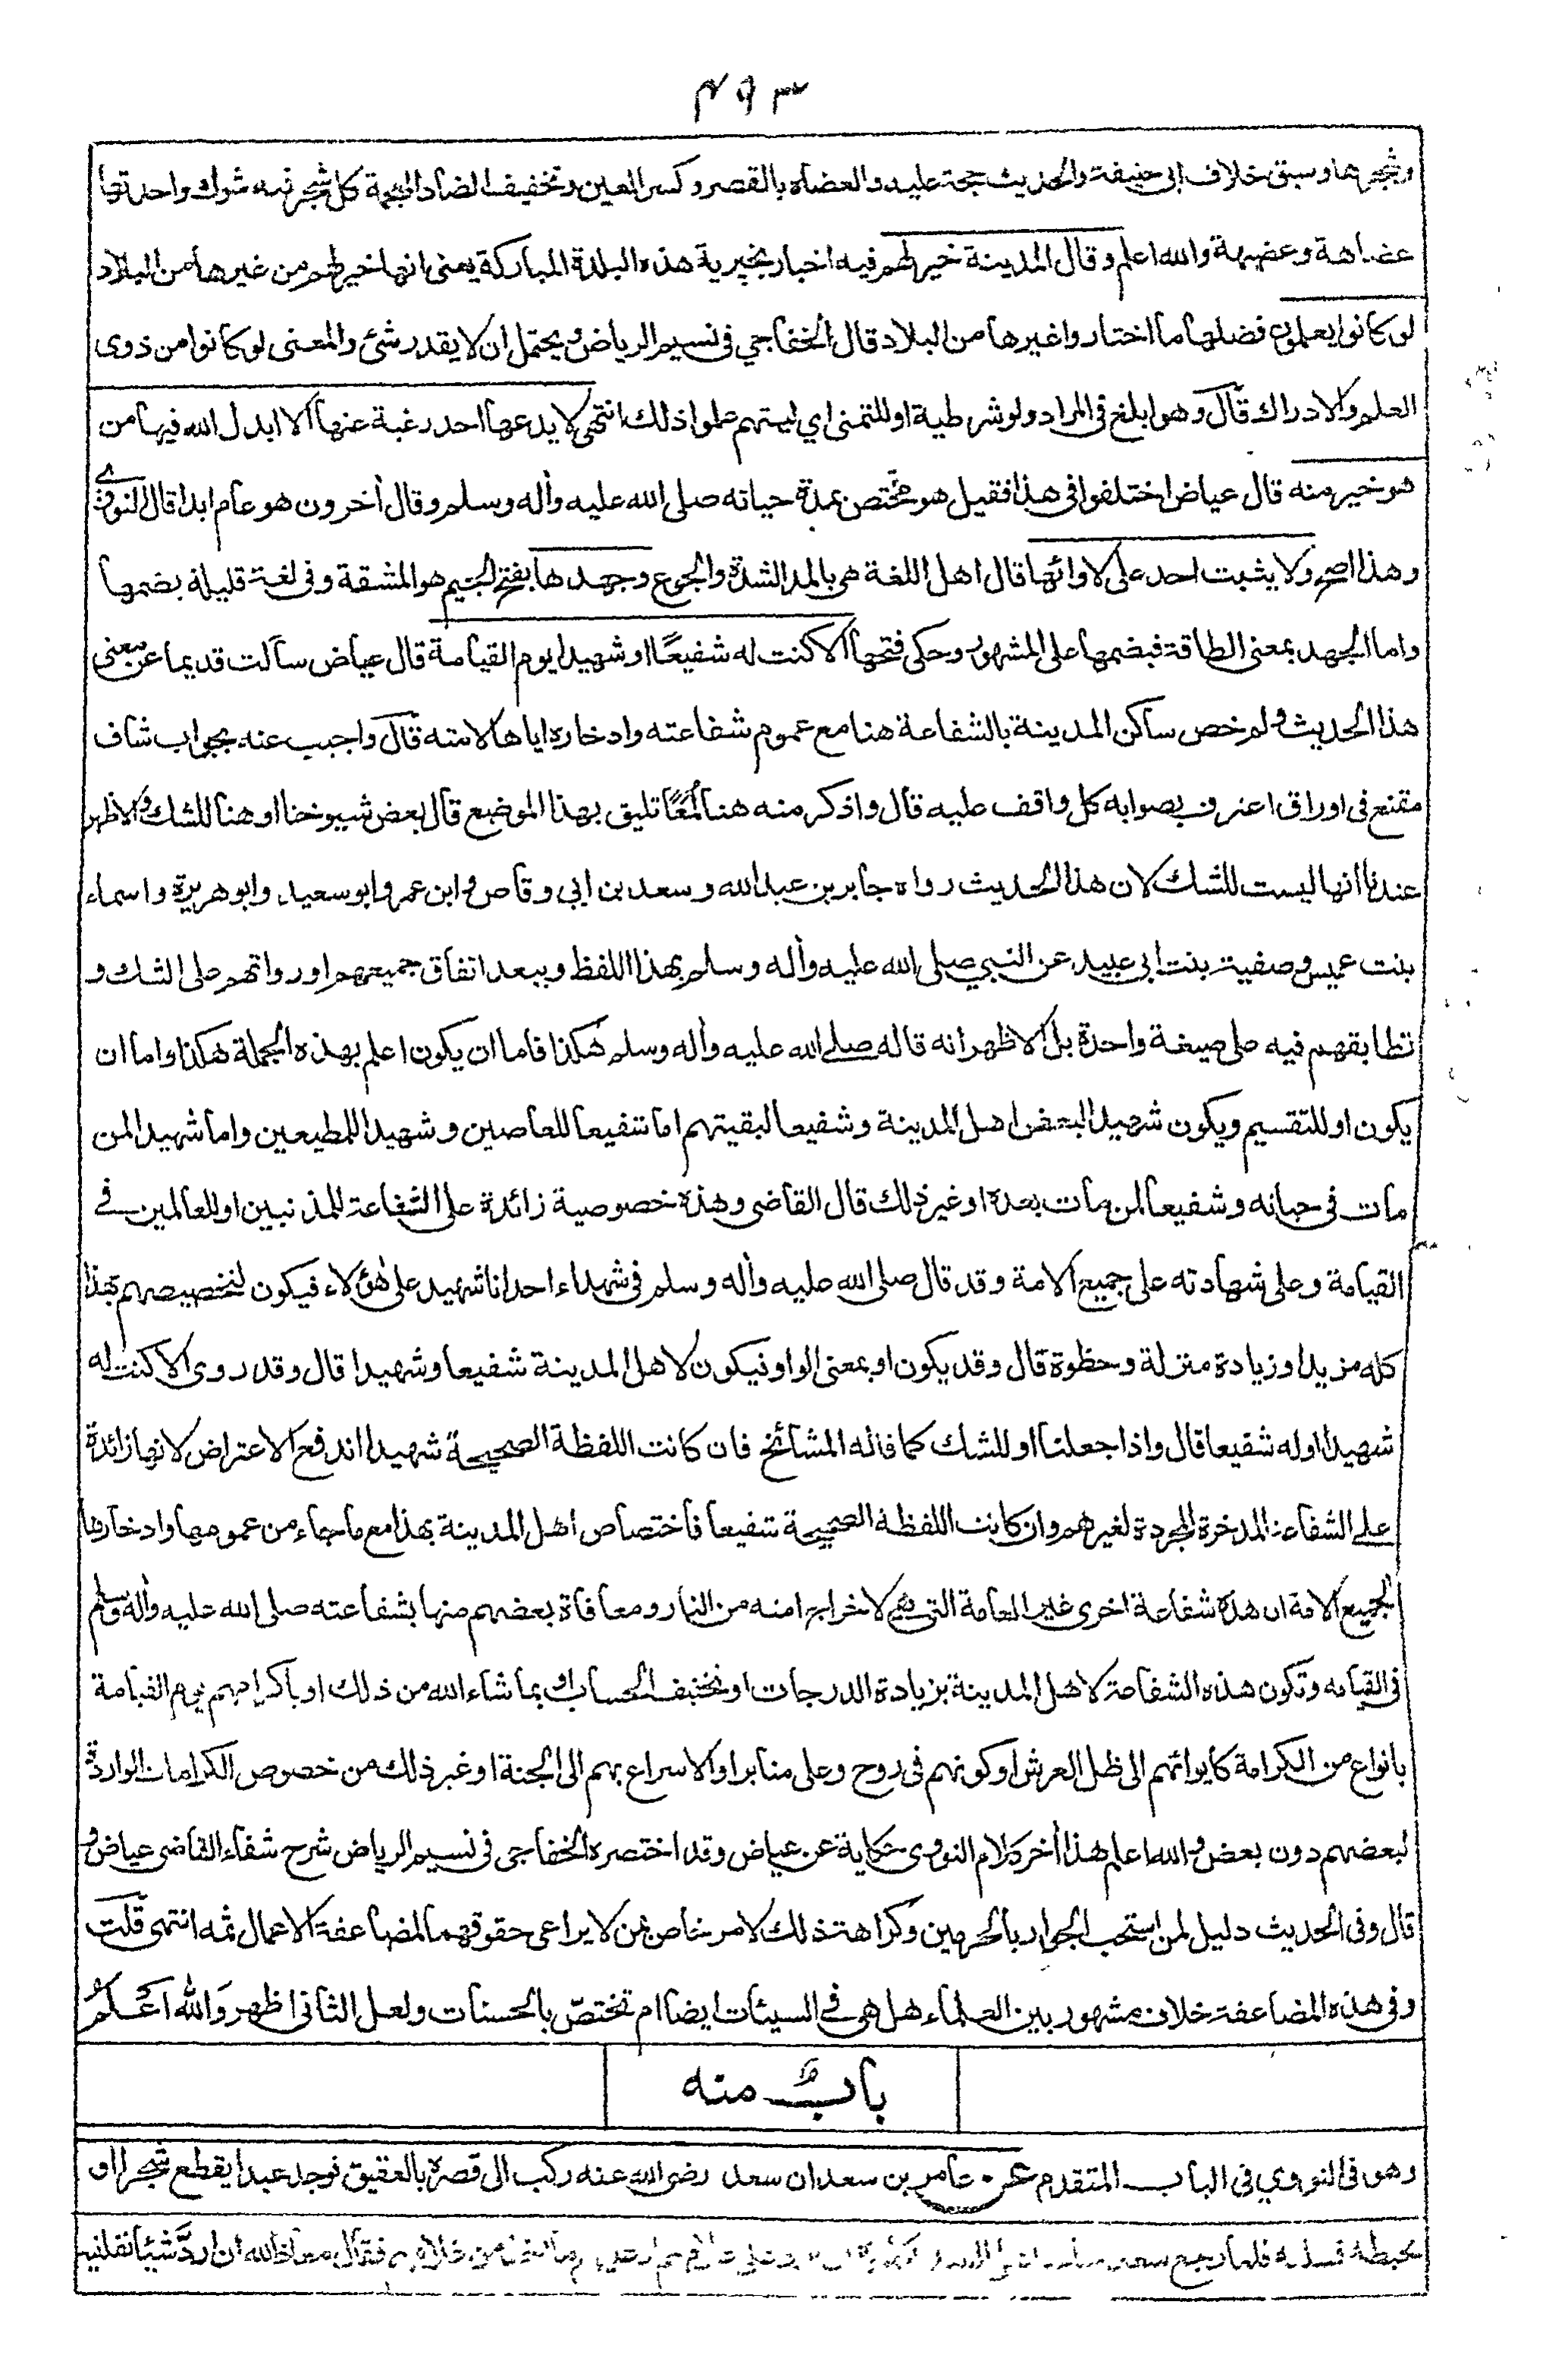 ۴۹۳
وشجرهما وسبق خلاف ابى حنيفة والحديث حجة عليه والعضاه بالقصر وكسر العين وتخفيف الضاد المعجمة كل شجر فيه شوك واحدتها
عضاهة وعضيهة والله اعلم وقال المدينة خير لهم فيه اخبار بخيرية هذه البلدة المباركة يعنى انها خير لهم من غيرها من البلاد
لو كانوا يعلمون فضلها ما اختاروا غيرها من البلاد قال الخفاجي فى نسيم الرياض ويحتمل ان لا يقدر شئ والمعنى لو كانوا من ذوى
العلم والادراك قال وهو ابلغ فى المراد ولو شرطية او للتمنى اي ليتهم علموا ذلك انتهى لا يدعها احد رغبة عنها الا ابدل الله فيها من
هو خير منه قال عياض اختلفوا فى هذا فقيل هو مختص بمدة حياته صلى الله عليه وأله وسلم وقال أخرون هو عام ابدا قال النووي
وهذا اصح ولا يثبت احد على لاوائها قال اهل اللغة هى بالمد الشدة والجوع وجهدها بفتح الجيم هو المشقة وفى لغة قليلة بضمها
واما الجهد بمعنى الطاقة فبضمها على المشهور وحكى فتحها الا كنت له شفيعًا او شهيدا يوم القيامة قال عياض سألت قديما عن معنى
هذا الحديث ولم خص ساكن المدينة بالشفاعة هنا مع عموم شفاعته وادخاره اياها لامته قال واجيب عنه بجواب شاف
مقنع فى اوراق اعترف بصوابه كل واقف عليه قال واذكر منه هنا لُمَعًا تليق بهذا الموضع قال بعض شيوخنا او هنا للشك والاظهر
عندنا انها ليست للشك لان هذا الحديث رواه جابر بن عبد الله وسعد بن ابي وقاص وابن عمر وابو سعيد وابو هريرة واسماء
بنت عميس وصفية بنت ابى عبيد عن النبي صلى الله عليه وأله وسلم بهذا اللفظ ويبعد اتفاق جميعهم او رواتهم على الشك و
تطابقهم فيه على صيغة واحدة بل الاظهر انه قاله صلى الله عليه وأله وسلم هكذا فاما ان يكون اعلم بهذه الجملة هكذا واما ان
يكون او للتقسيم ويكون شهيدا لبعض اهل المدينة وشفيعا لبقيتهم اما شفيعا للعاصين وشهيدا للمطيعين واما شهيدا لمن
مات فى حياته وشفيعا لمن مات بعده او غير ذلك قال القاضى وهذه خصوصية زائدة على الشفاعة للمذنبين او للعالمين فى
القيامة وعلى شهادته على جميع الامة وقد قال صلى الله عليه وأله وسلم فى شهداء احد انا شهيد على هؤلاء فيكون لتخصيصهم بهذا
كله مزيدا وزيادة منزلة وحظوة قال وقد يكون او بمعنى الواو فيكون لاهل المدينة شفيعا وشهيدا قال وقد روى الا كنت له
شهيدا او له شفيعا قال واذا جعلنا او للشك كما قاله المشائخ فان كانت اللفظة الصحيحة شهيدا اندفع الاعتراض لانها زائدة
على الشفاعة المدخرة المجردة لغيرهم وان كانت اللفظة الصحيحة شفيعا فاختصاص اهل المدينة بهذا مع ما جاء من عمومها وادخارها
لجميع الامة ان هذه شفاعة اخرى غير العامة التى هى لاخراج امته من النار ومعافاة بعضهم منها بشفاعته صلى الله عليه وأله وسلم
فى القيامه وتكون هذه الشفاعة لاهل المدينة بزيادة الدرجات او تخفيف الحساب او بما شاء الله من ذلك او باكرامهم يوم القيامة
بانواع من الكرامة كايوائهم الى ظل العرش او كونهم فى روح وعلى منابر او الاسراع بهم الى الجنة او غير ذلك من خصوص الكرامات الواردة
لبعضهم دون بعض والله اعلم هذا أخر كلام النووى حكاية عن عياض وقد اختصره الخفاجى فى نسيم الرياض شرح شفاء القاضى عياض و
قال وفى الحديث دليل لمن استحب الجوار بالحرمين وكراهة ذلك لامر خاص بمن لا يراعى حقوقهما لمضاعفة الاعمال ثمه انتهى قلت
وفى هذه المضاعفة خلاف مشهور بين العلماء هل هى فى السيئات ايضا ام تختصّ بالحسنات ولعل الثانى اظهر وَالله اَعْلَمُ
بابٌ منه
وهو فى النووي فى الباب المتقدم عن عامر بن سعد ان سعد رضى الله عنه ركب الى قصره بالعقيق فوجد عبدا يقطع شجرا او
يخبطه فسلبه فلما رجع سعد من غلامهم فقال معاذ الله ان اردَّ شيئا نفلنيه